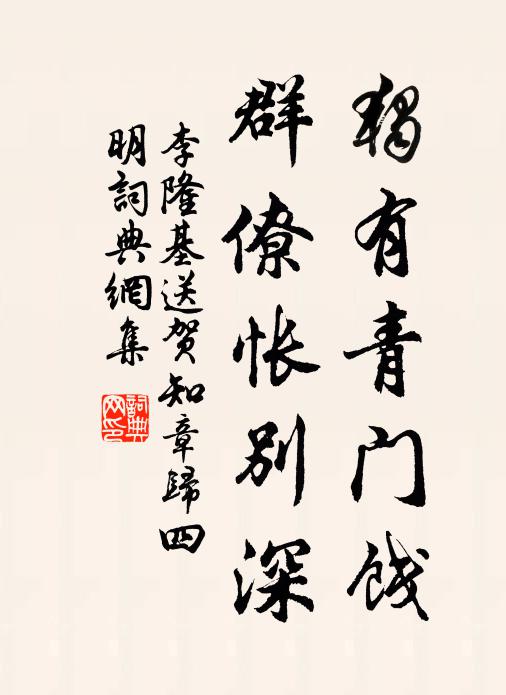 独有青门饯
群僚怅别深
李隆基送贺知章歸四
明詞典網集
詞典
网印